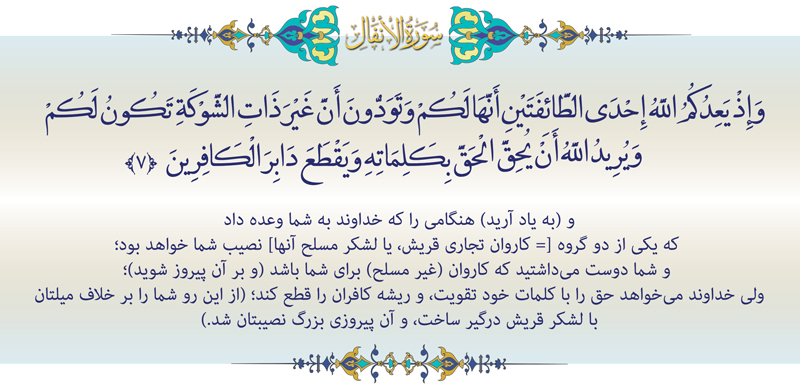 سُورَةُ الْأَنْفَالِ
وَإِذْ يَعِدُكُمُ اللَّهُ إِحْدَى الطَّائِفَتَيْنِ أَنَّهَا لَكُمْ وَتَوَدُّونَ أَنَّ غَيْرَ ذَاتِ الشَّوْكَةِ تَكُونُ لَكُمْ
وَيُرِيدُ اللَّهُ أَنْ يُحِقَّ الْحَقَّ بِكَلِمَاتِهِ وَيَقْطَعَ دَابِرَ الْكَافِرِينَ ﴿۷﴾
و (به یاد آرید) هنگامی را که خداوند به شما وعده داد
که یکی از دو گروه [= کاروان تجاری قریش، یا لشکر مسلح آنها] نصیب شما خواهد بود؛
و شما دوست می‌داشتید که کاروان (غیر مسلح) برای شما باشد (و بر آن پیروز شوید)؛
ولی خداوند می‌خواهد حق را با کلمات خود تقویت، و ریشه کافران را قطع کند؛ (از این رو شما را بر خلاف میلتان
با لشکر قریش درگیر ساخت، و آن پیروزی بزرگ نصیبتان شد.)